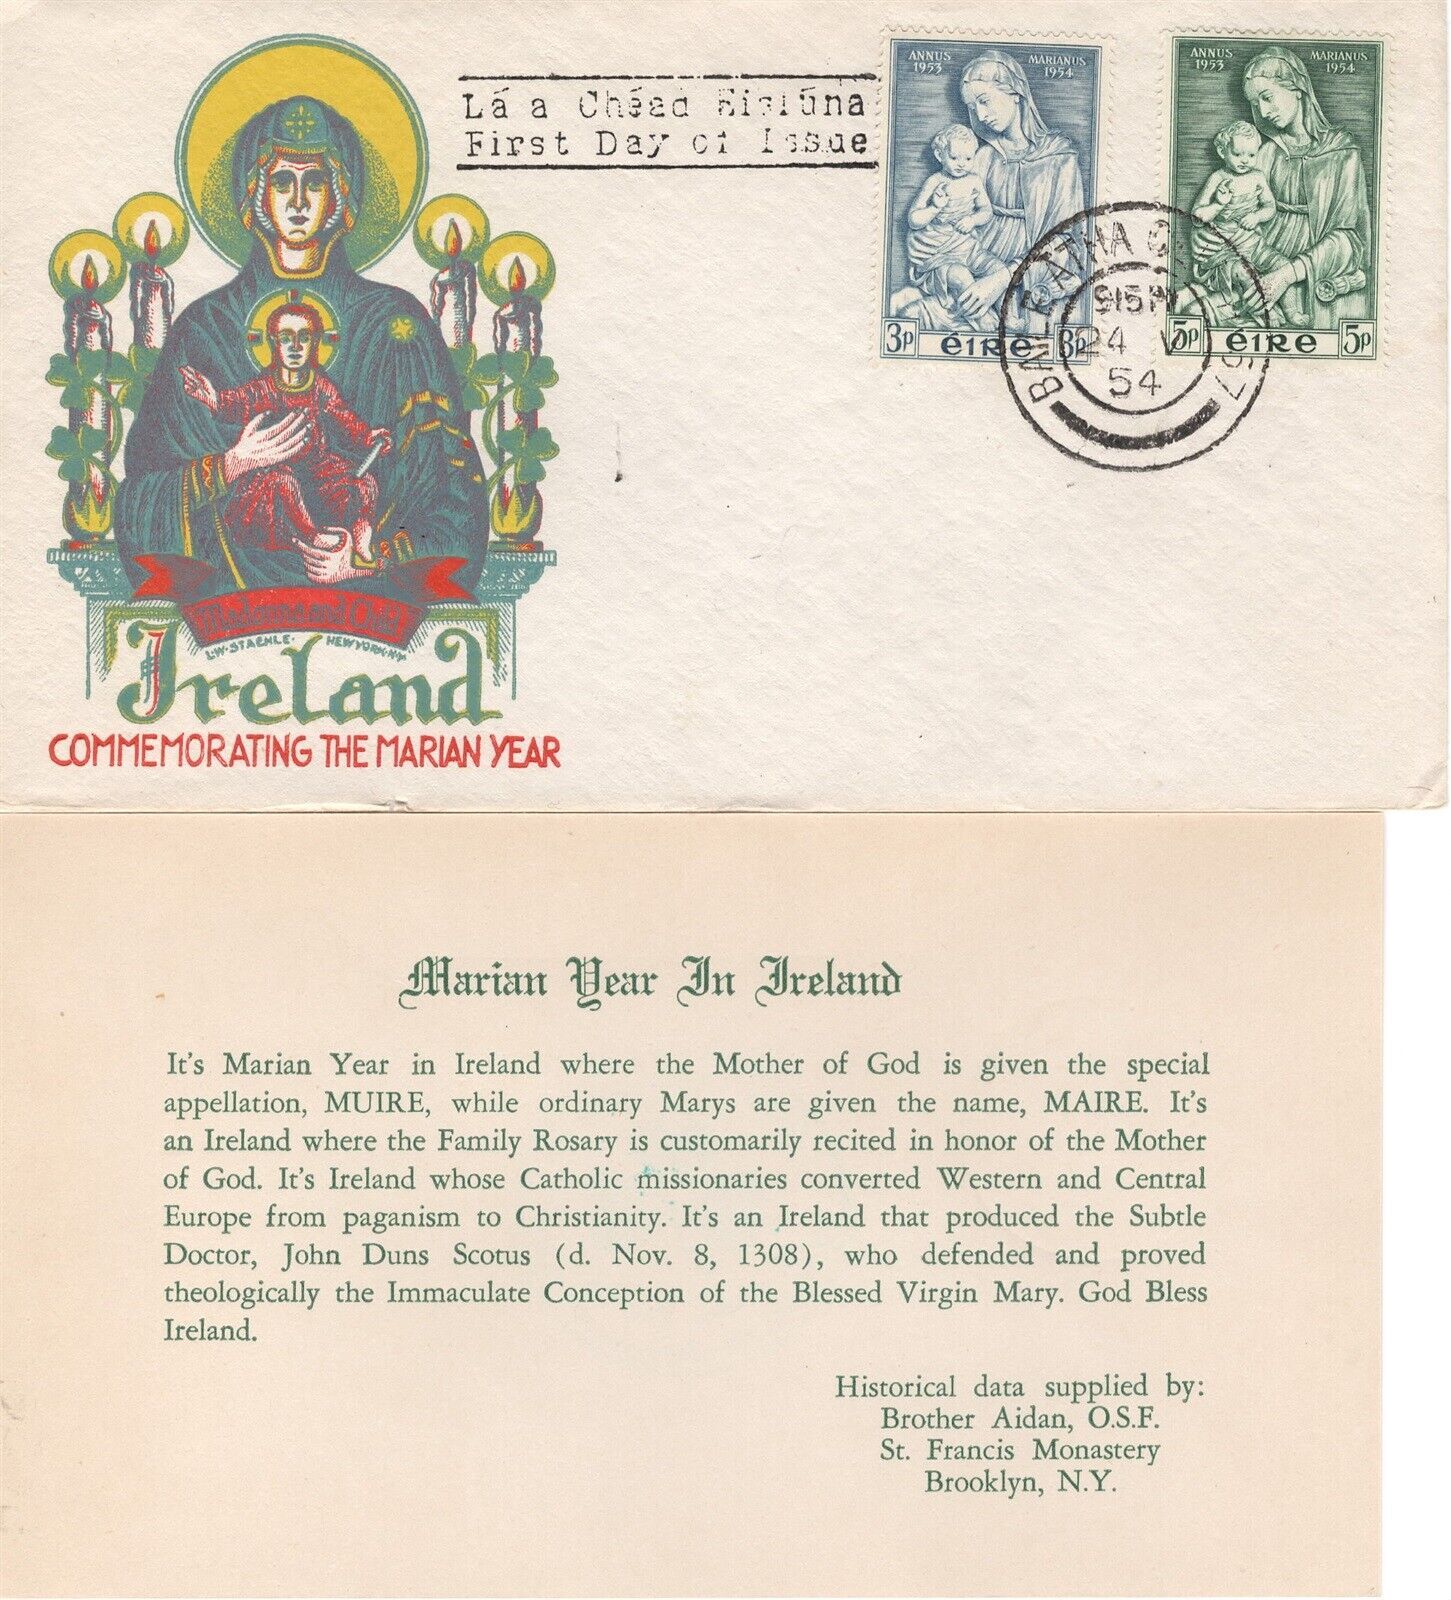 Lá a Chéad Eisiúna
First Day of Issue
ANNUS MARIANUS
1953 1954
3p éire 3p
ANNUS MARIANUS
1953 1954
5p éire 5p
BAILE ÁTHA CLIATH
915 PM
24 V
54
Madonna and Child
L.W. STAEHLE. NEW YORK. N.Y.
Ireland
COMMEMORATING THE MARIAN YEAR
Marian Year In Ireland
It's Marian Year in Ireland where the Mother of God is given the special
appellation, MUIRE, while ordinary Marys are given the name, MAIRE. It's
an Ireland where the Family Rosary is customarily recited in honor of the Mother
of God. It's Ireland whose Catholic missionaries converted Western and Central
Europe from paganism to Christianity. It's an Ireland that produced the Subtle
Doctor, John Duns Scotus (d. Nov. 8, 1308), who defended and proved
theologically the Immaculate Conception of the Blessed Virgin Mary. God Bless
Ireland.
Historical data supplied by:
Brother Aidan, O.S.F.
St. Francis Monastery
Brooklyn, N.Y.